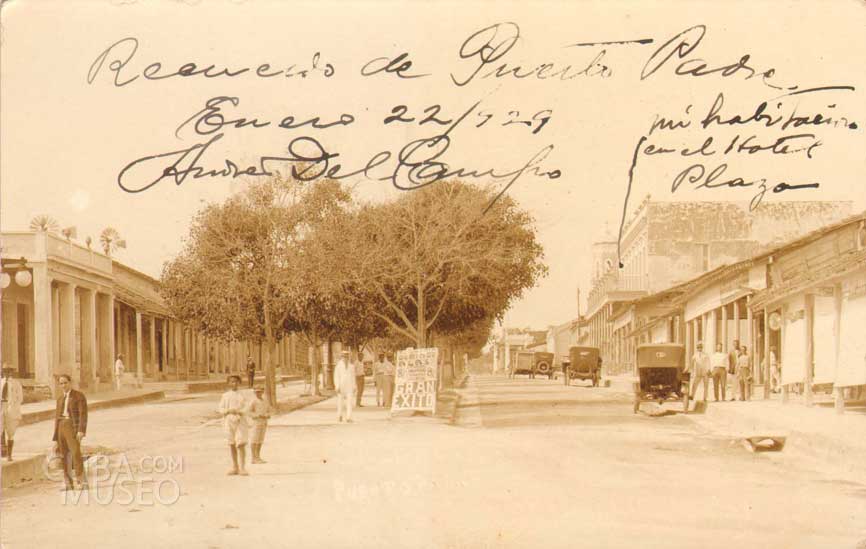 Recuerdo de Puerto Padre
Enero 22/929
Andrés Del Campo
mi habitación
en el Hotel
Plaza
GRAN
EXITO
CUBA.COM
MUSEO